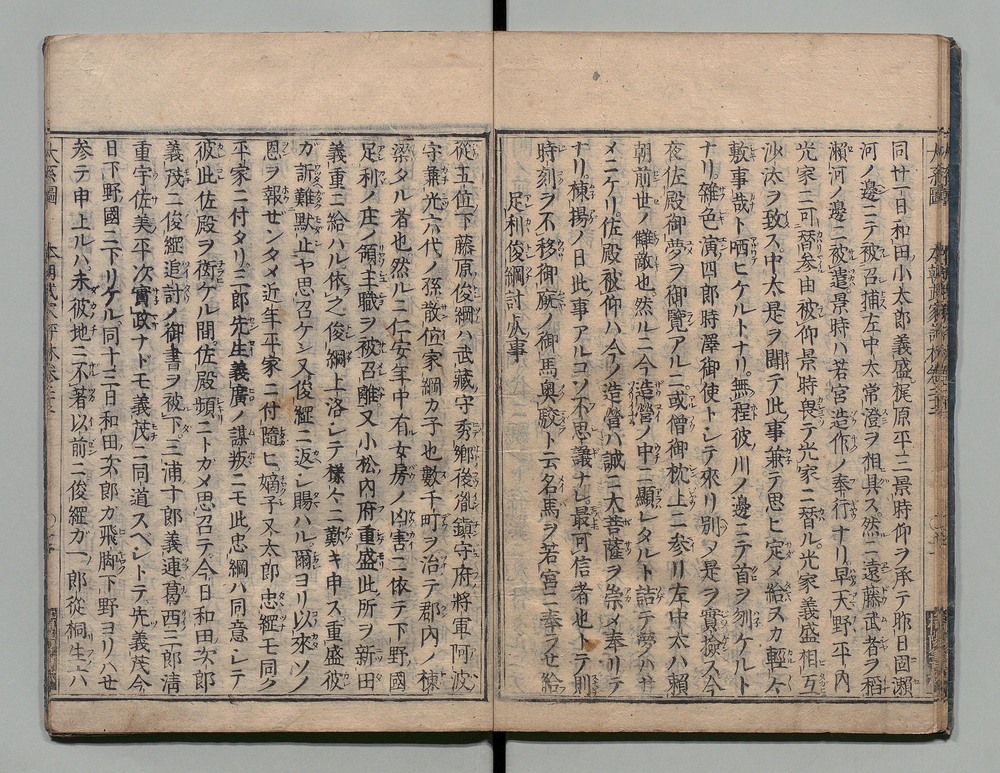 同廿一日和田小太郎義盛梶原平三景時仰ヲ承テ即日固瀬
河ノ邊ニテ被召捕左中太常澄ヲ相具ス然ニ遠藤武者ヲ稻
瀬河ノ邊ニ被遣景時ハ若宮造作ノ奉行ナリ早天野平内
光家ニ可替參由被仰景時畏テ光家ニ替ル光家義盛相互
沙汰ヲ致ス中太是ヲ聞テ此事兼テ思ヒ定メ給スカ輕々
敷事哉ト哂ヒケルトナリ無程彼川ノ邊ニテ首ヲ刎ケルト
ナリ雜色濱四郎時澤御使トシテ來リ別ヲ是ヲ實撿ス今
夜佐殿御夢ヲ御覽アルニ或僧御枕上ニ參リ左中太ハ賴
朝前世ノ讎敵也然ルニ今造營ノ中ニ顯レタルト詰テ夢ハサ
メニケリ佐殿被仰ハ今ノ造營ハ誠ニ大菩薩ヲ崇メ奉リテ
ナリ棟揚ノ日此事アルコソ不思議ナレ最可信者也トテ則
時刻ヲ不移御厩ノ御馬奥駮ト云名馬ヲ若宮ニ奉ラせ給
足利俊綱討〆事
從五位下藤原俊綱ハ武藏守秀郷後胤鎮守府將軍阿波
守兼光六代ノ孫散位家綱カ子也數千町ヲ治テ郡内ノ棟
梁タル者也然ルニ仁安年中有女房ノ凶害ニ依テ下野國
足利ノ庄ノ領主職ヲ被召離又小松内府重盛此所ヲ新田
義重ニ給ハル依之俊綱上洛シテ樣々ニ歎キ申ス重盛彼
ガ訴難默止ヤ思召ケン又俊綱ニ返シ賜ハル爾ヨリ以來ソノ
恩ヲ報せンタメ近年平家ニ付隨ヒ嫡子又太郎忠綱モ同ク
平家ニ付タリ三郎先生義廣ノ謀叛ニモ此忠綱ハ同意シテ
彼此佐殿ヲ背ケル間佐殿頻ニトカメ思召テ今日和田次郎
義茂ニ俊綱追討ノ御書ヲ被下三浦十郎義連葛西三郎清
重宇佐美平次實政ナドモ義茂ニ同道スベシトテ先義茂今
日下野國ニ下リケル同十三日和田次郎カ飛脚下野ヨリハせ
參テ申上ルハ未彼地ニ不著以前ニ俊綱ガ一郎從桐生六